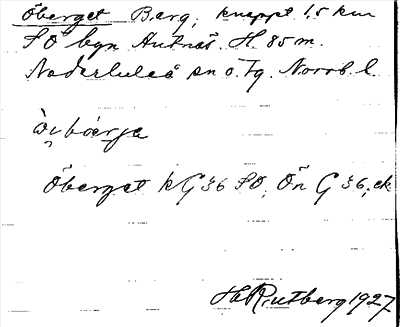 Öberget Berg, knappt 1,5 km
SO byn Antnäs. H. 85 m.
Nederluleå sn o. tg. Norrb. l.
Öberget kG 36 SO, Ön G 36, ek
H Rutberg 1927